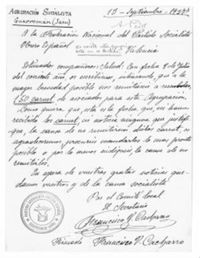 AGRUPACIÓN SOCIALISTA
Guarromán (Jaén)
15 - Septiembre - 1937
A la Federación Nacional del Partido Socialista
Obrero Español
Valencia
Estimados compañeros: Salud. Con fecha 8 de Julio
del corriente año, os escribimos, indicando que a la
mayor brevedad posible nos remitierais
(50) carnet de asociados para esta Agrupación.
Como quiera que, esta es la fecha que, no hemos
recibido los carnet, ni noticia ninguna que justifi-
que, la causa de no remitirnos dichos carnet, os
agradeceremos procuréis mandarlos lo más pronto
posible y por lo menos indiquéis, la causa de no
remitirlos.
En espera de vuestras gratas noticias que-
damos vuestros y de la causa socialista
Por el Comité local
El Secretario
Francisco
Firmado Francisco